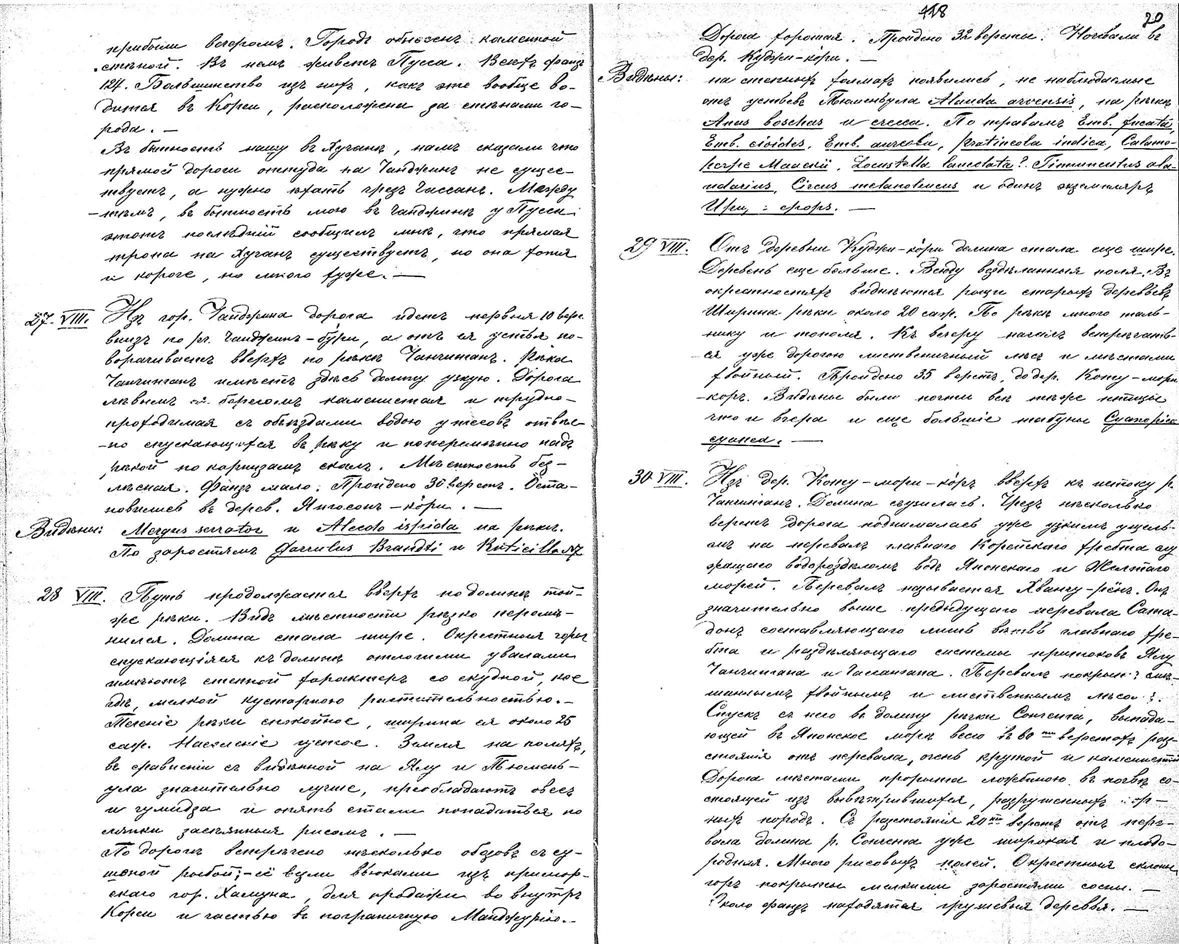 прибыли вечеромъ. Городъ обнесенъ каменной
стѣной. Въ немъ живетъ Пусса. Всѣхъ фанзъ
124. Большинство изъ нихъ, какъ это вообще во-
дится въ Кореѣ, расположена за стѣнами го-
рода. —
Въ бытность нашу въ Кучанѣ, намъ сказали что
прямой дороги оттуда на Чанджинъ не суще-
ствуетъ, а нужно ѣхать чрезъ Чассанъ. Между
-тѣмъ, въ бытность мою въ Чанджинѣ у Пуссы
этотъ послѣдній сообщилъ мнѣ, что прямая
тропа на Кучанъ существуетъ, но она хотя
и короче, но много хуже. —
27. VIII. Изъ гор. Чанджина дорога идетъ первыя 10 верс.
внизъ по рч. Чанджинъ-бури, а отъ ея устья по-
ворачиваетъ вверхъ по рѣкѣ Чанчинганъ. Рѣка
Чанчинганъ имѣетъ здѣсь долину узкую. Дорога
лѣвымъ ея берегомъ каменистая и трудно-
проходимая съ объѣздами водою утесовъ отвѣс-
-но спускающихся въ рѣку и поперемѣнно надъ
рѣкой по корнизамъ скалъ. Мѣстность без-
лѣсная. Фанзъ мало. Пройдено 30 верстъ. Оста-
новились въ дерев. Янгосон-кори. —
Видѣны: Mergus serrator и Alcedo ispida на рѣкѣ.
По заростямъ Garrulus Brandti и Ruticilla
28 VIII. Путь продолжается вверхъ по долинѣ той-
же рѣки. Видъ мѣстности рѣзко перемѣ-
нился. Долина стала шире. Окрестныя горы
спускающіяся къ долинѣ отлогими увалами
имѣютъ степной характеръ со скудной, кое
гдѣ, мелкой кустарною растительностью. —
Теченіе рѣки спокойное, ширина ея около 25
саж. Населеніе густое. Земля на поляхъ,
въ сравненіи съ видѣнной на Ялу и Тюмень-
ула значительно лучше, преобладаютъ овесъ
и гумидза и опять стали попадаться по
лянки засѣянныя рисомъ. —
По дорогѣ встрѣчено нѣсколько обозовъ съ су-
шеной рыбой; - её везли вьюками изъ примор-
скаго гор. для продажи во внутрь
Кореи и частью въ пограничную Манджурію. —
118
20
Дорога хорошая. Пройдено 32 версты. Ночевали въ
дер. Куджи-кори. —
Видѣны: на степныхъ холмахъ появились, не наблюдаемые
отъ устьевъ Тюменьула Alauda arvensis, на рѣкѣ
Anas boschas и crecca. По травамъ Emb. fucata,
Emb. cioides, Emb. aureola, Pratincola indica, Calamo-
herpe Maackii, Locustella lanceolata? Tinnunculus alau-
darius, Circus melanoleucus и одинъ экземпляръ
—
29 VIII. Отъ деревни Куджи-кори долина стала еще шире.
Деревень еще больше. Всюду воздѣланныя поля. Въ
окрестностяхъ виднѣются рощи старыхъ деревьевъ
Ширина рѣки около 20 саж. По рѣкѣ много таль-
нику и тополя. Къ вечеру началъ встрѣчать-
ся уже дорогою лиственичный лѣсъ и мѣстами
хвойный. Пройдено 35 верстъ, до дер. Кожу-мори
-коръ. Видѣны были почти всѣ тѣже птицы
что и вчера и еще большіе табуны Cyanopica
cyanea. —
30 VIII. Изъ дер. Кожу-мори-коръ вверхъ къ истоку р.
Чанчинганъ. Долина сузилась. Чрезъ нѣсколько
верстъ дорога поднималась уже узкимъ ущель-
емъ на перевалъ главнаго Корейскаго хребта слу
жащаго водораздѣломъ водъ Японскаго и Желтаго
морей. Перевалъ называется Хвангу-рёнъ. Онъ
значительно выше предыдущаго перевала Сата-
донъ составляющаго лишь вѣтвь главнаго хре-
бта и раздѣляющаго системы притоковъ Ялу
Чанчингана и Чассангана. Перевалъ покрытъ смѣ-
шаннымъ хвойнымъ и лиственнымъ лѣсомъ.
Спускъ съ него въ долину рѣчки Сонгента, выпада-
ющей въ Японское море всего въ 60ти верстахъ раз-
стоянія отъ перевала, очень крутой и каменистый
Дорога мѣстами прорыта ложбиною въ почвѣ со-
стоящей изъ вывѣтрившихся, разрушенныхъ гор-
ныхъ породъ. Съ разстоянія 20ти верстъ отъ пере-
вала долина р. Сонгента уже широкая и плодо-
родная. Много рисовыхъ полей. Окрестныя склоны
горъ покрыты мелкими заростями сосны. —
Около фанзъ находятся грушевыя деревья. —